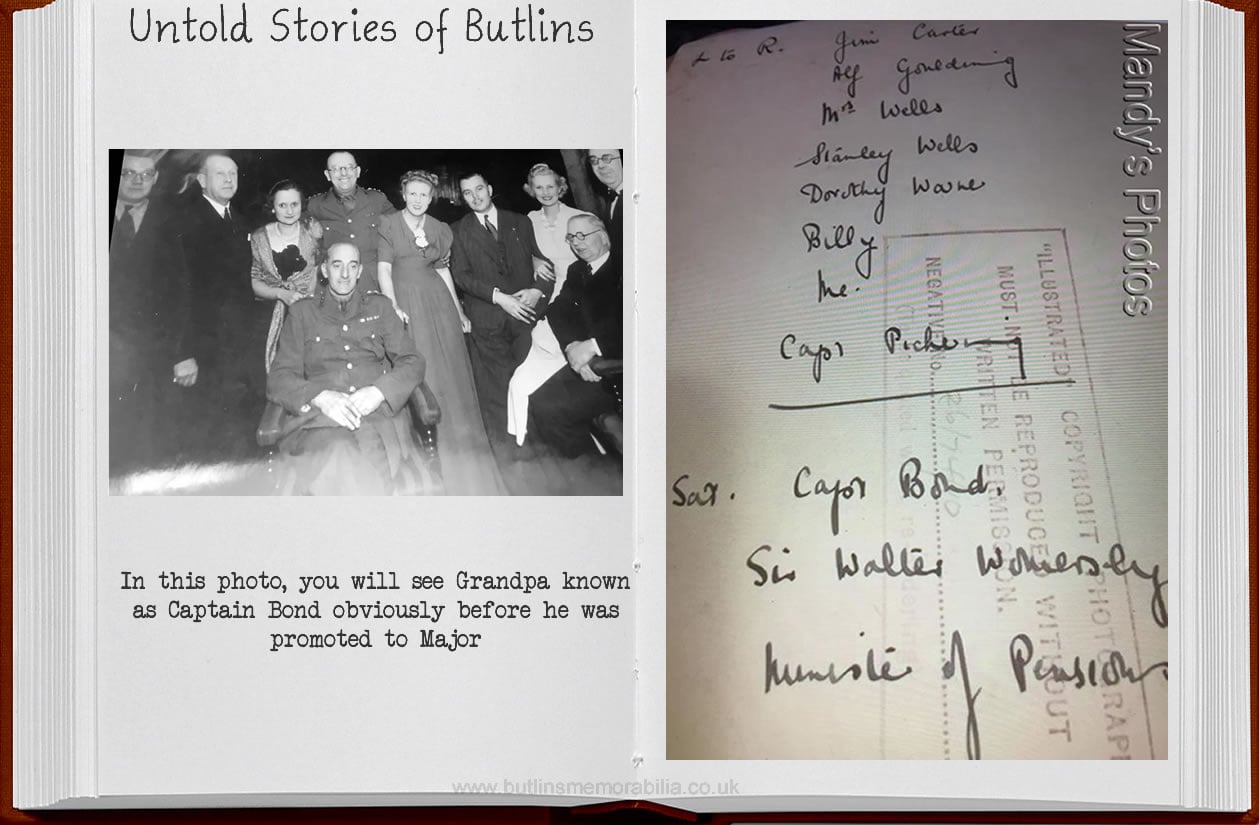 Untold Stories of Butlins
In this photo, you will see Grandpa known
as Captain Bond obviously before he was
promoted to Major
L to R. Jim Carter
Alf Goulding
Mrs Wells
Stanley Wells
Dorothy
Billy
Me.
Capt
Sat. Capt Bond.
Sir Walter Womersley
Minister of Pensions
"ILLUSTRATED" COPYRIGHT PHOTOGRAPH
MUST NOT BE REPRODUCED WITHOUT
WRITTEN PERMISSION.
NEGATIVE NO.
Mandy's Photos
www.butlinsmemorabilia.co.uk